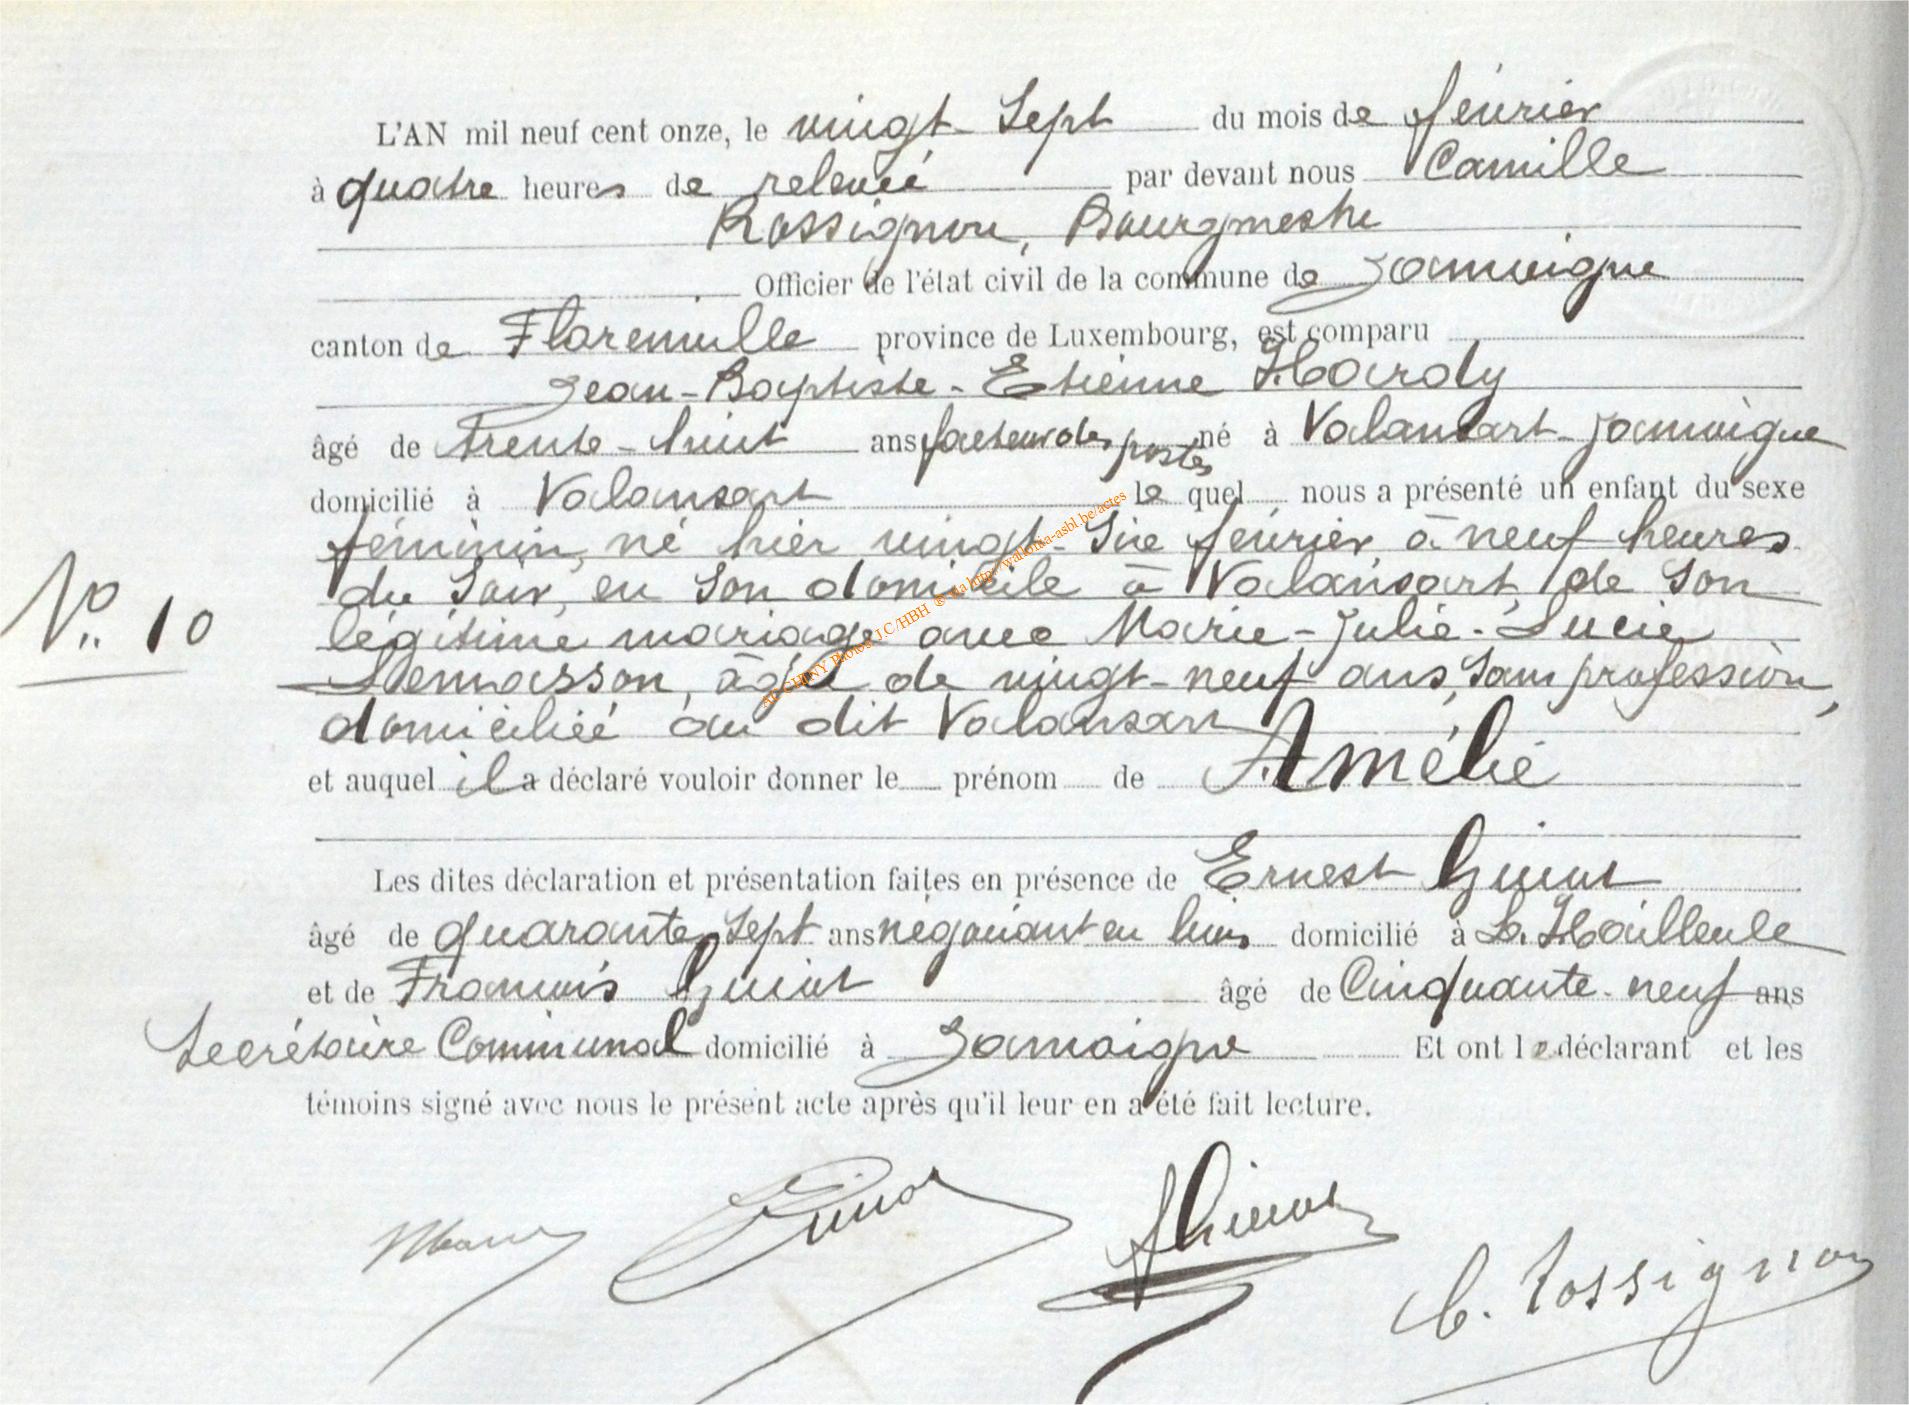 L'AN mil neuf cent onze, le vingt-Sept du mois de février
à quatre heures de relevée par devant nous Camille
Rossignon, Bourgmestre
Officier de l'état civil de la commune de Jamoigne
canton de Florenville province de Luxembourg, est comparu
Jean-Baptiste-Etienne Hardy
âgé de Trente-huit ans facteur des postes né à Valansart-Jamoigne
domicilié à Valansart le quel nous a présenté un enfant du sexe
féminin, né hier vingt-Six février à neuf heures
du Soir, en Son domicile à Valansart, de Son
N° 10
légitime mariage avec Marie-Julie-Lucie
Lemasson, âgée de vingt-neuf ans, Sans profession,
domiciliée au dit Valansart
et auquel il a déclaré vouloir donner le prénom de Amélie
Les dites déclaration et présentation faites en présence de Ernest Guiot
âgé de quarante Sept ans négociant en domicilié à La Hailleule
et de François Guiot âgé de Cinquante-neuf ans
Secrétaire Communal domicilié à Jamoigne Et ont le déclarant et les
témoins signé avec nous le présent acte après qu'il leur en a été fait lecture.
Guiot
Guiot
C. Rossignon
AC CHINY Photos J.C/HBH © via http://wallonia-asbl.be/actes